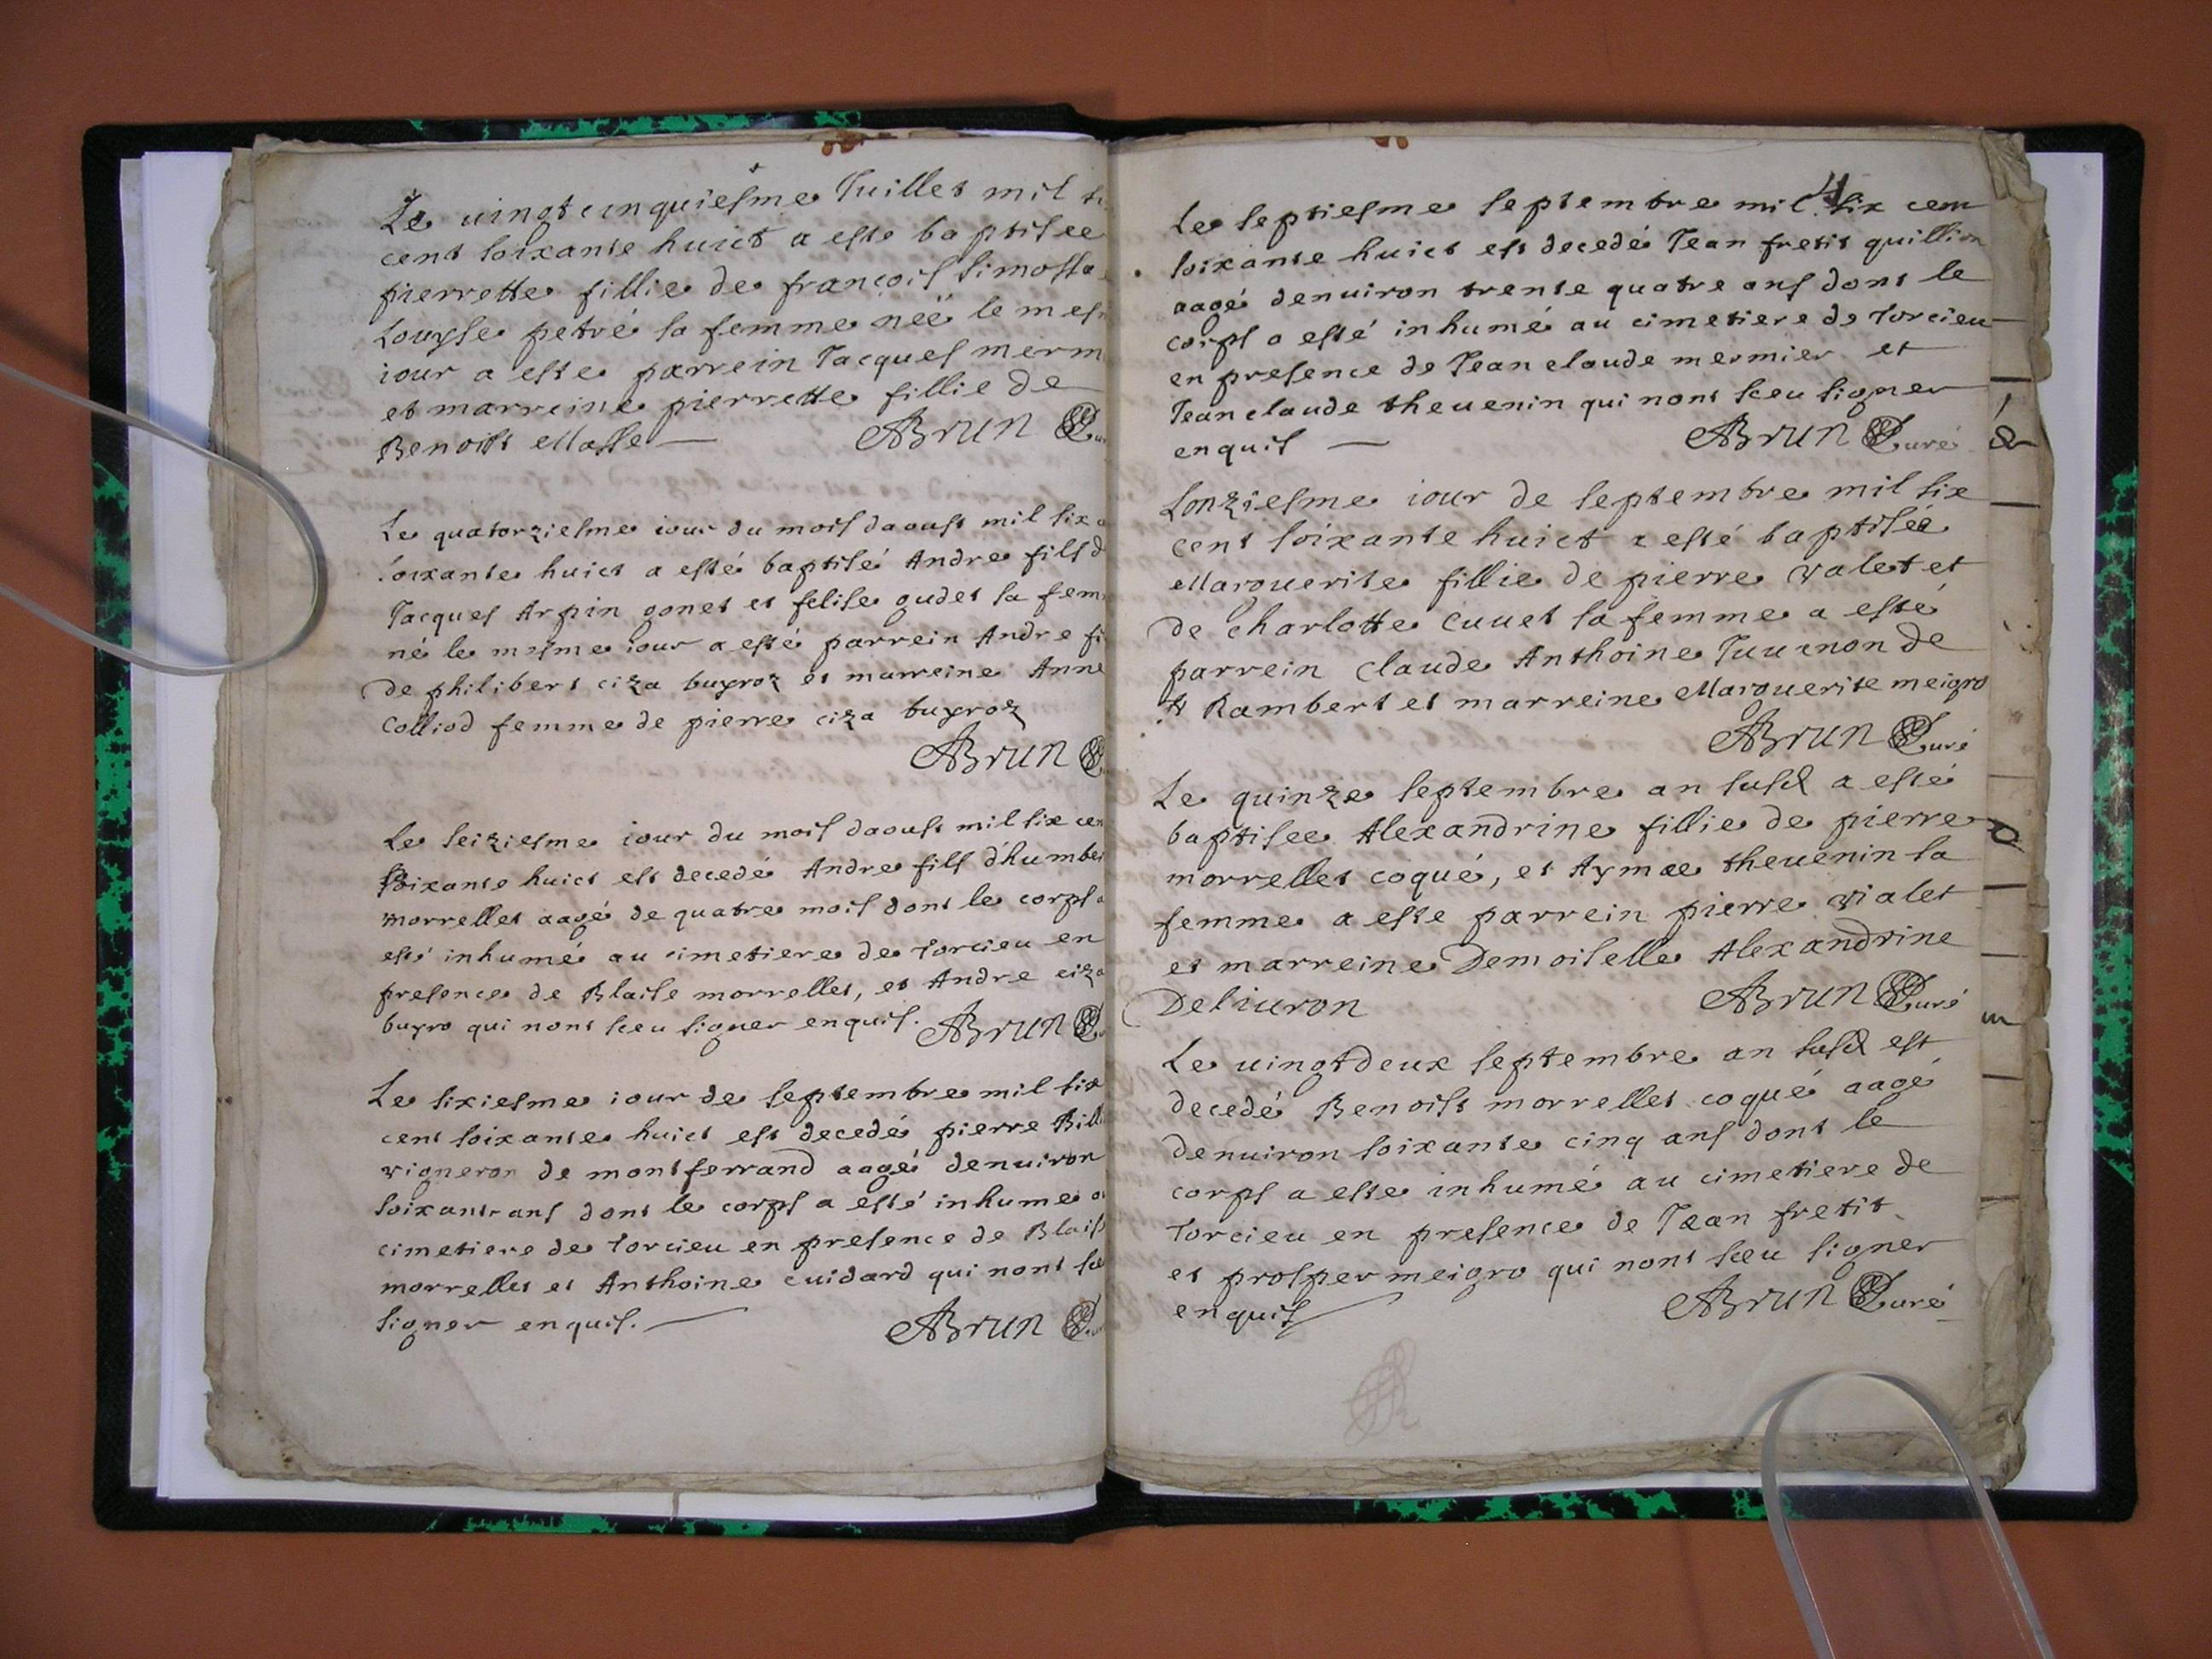 Le uingt cinquiesme Juillet mil
cent soixante huict a este baptisee
pierrette fillie de françois simossa
Louyse petré sa femme née le mes
iour a este parrein Jacques merm
et marreine pierrette fillie de
Benoist Masse ABrun
Le quatorziesme iour du mois daoust mil six
soixante huict a esté baptisé Andre fils d
Jacques Arpin gonet et felise gudet sa fem
né le mesme iour a esté parrein Andre fi
de philibert ciza buyroz et marreine Anne
Colliod femme de pierre ciza buyroz
ABrun
Le seiziesme iour du mois daoust mil six cen
soixante huict est decedé Andre fils d'humber
morrellet aagé de quatre mois dont le corps a
esté inhumé au cimetiere de Torcieu en
presence de Blaise morrellet, et Andre ciza
buyro qui nont sceu signer enquis. ABrun
Le sixiesme iour de septembre mil six
cent soixante huict est decedé pierre Bill
vigneron de montferrand aagé denuiron
soixante ans dont le corps a esté inhume a
cimetiere de Torcieu en presence de Blais
morrellet et Anthoine cuidard qui nont sce
signer enquis. ABrun
4
Le septiesme septembre mil six cent
soixante huict est decedé Jean fretit quillion
aagé denuiron trente quatre ans dont le
corps a esté inhumé au cimetiere de Torcieu
en presence de Jean claude mermier et
Jean claude theuenin qui nont sceu signer
enquis ABrun Curé
Lonziesme iour de septembre mil six
cent soixante huict a esté baptisée
Marguerite fillie de pierre valet et
de Charlotte Cuuet sa femme a esté
parrein Claude Anthoine Juuanon de
St Rambert et marreine Marguerite meigro
ABrun Curé
Le quinze septembre an susd a esté
baptisee Alexandrine fillie de pierre
morrellet coqué, et Aymae theuenin sa
femme a este parrein pierre vialet
et marreine Demoiselle Alexandrine
Deliuron ABrun Curé
Le uingtdeux septembre an susd est
decedé Benoist morrellet coqué aagé
denuiron soixante cinq ans dont le
corps a este inhumé au cimetiere de
Torcieu en presence de Jean fretit
et prosper meigro qui nont sceu signer
enquis ABrun Curé